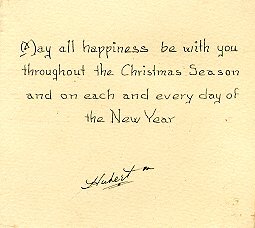 May all happiness be with you
throughout the Christmas Season
and on each and every day of
the New Year
Hubert